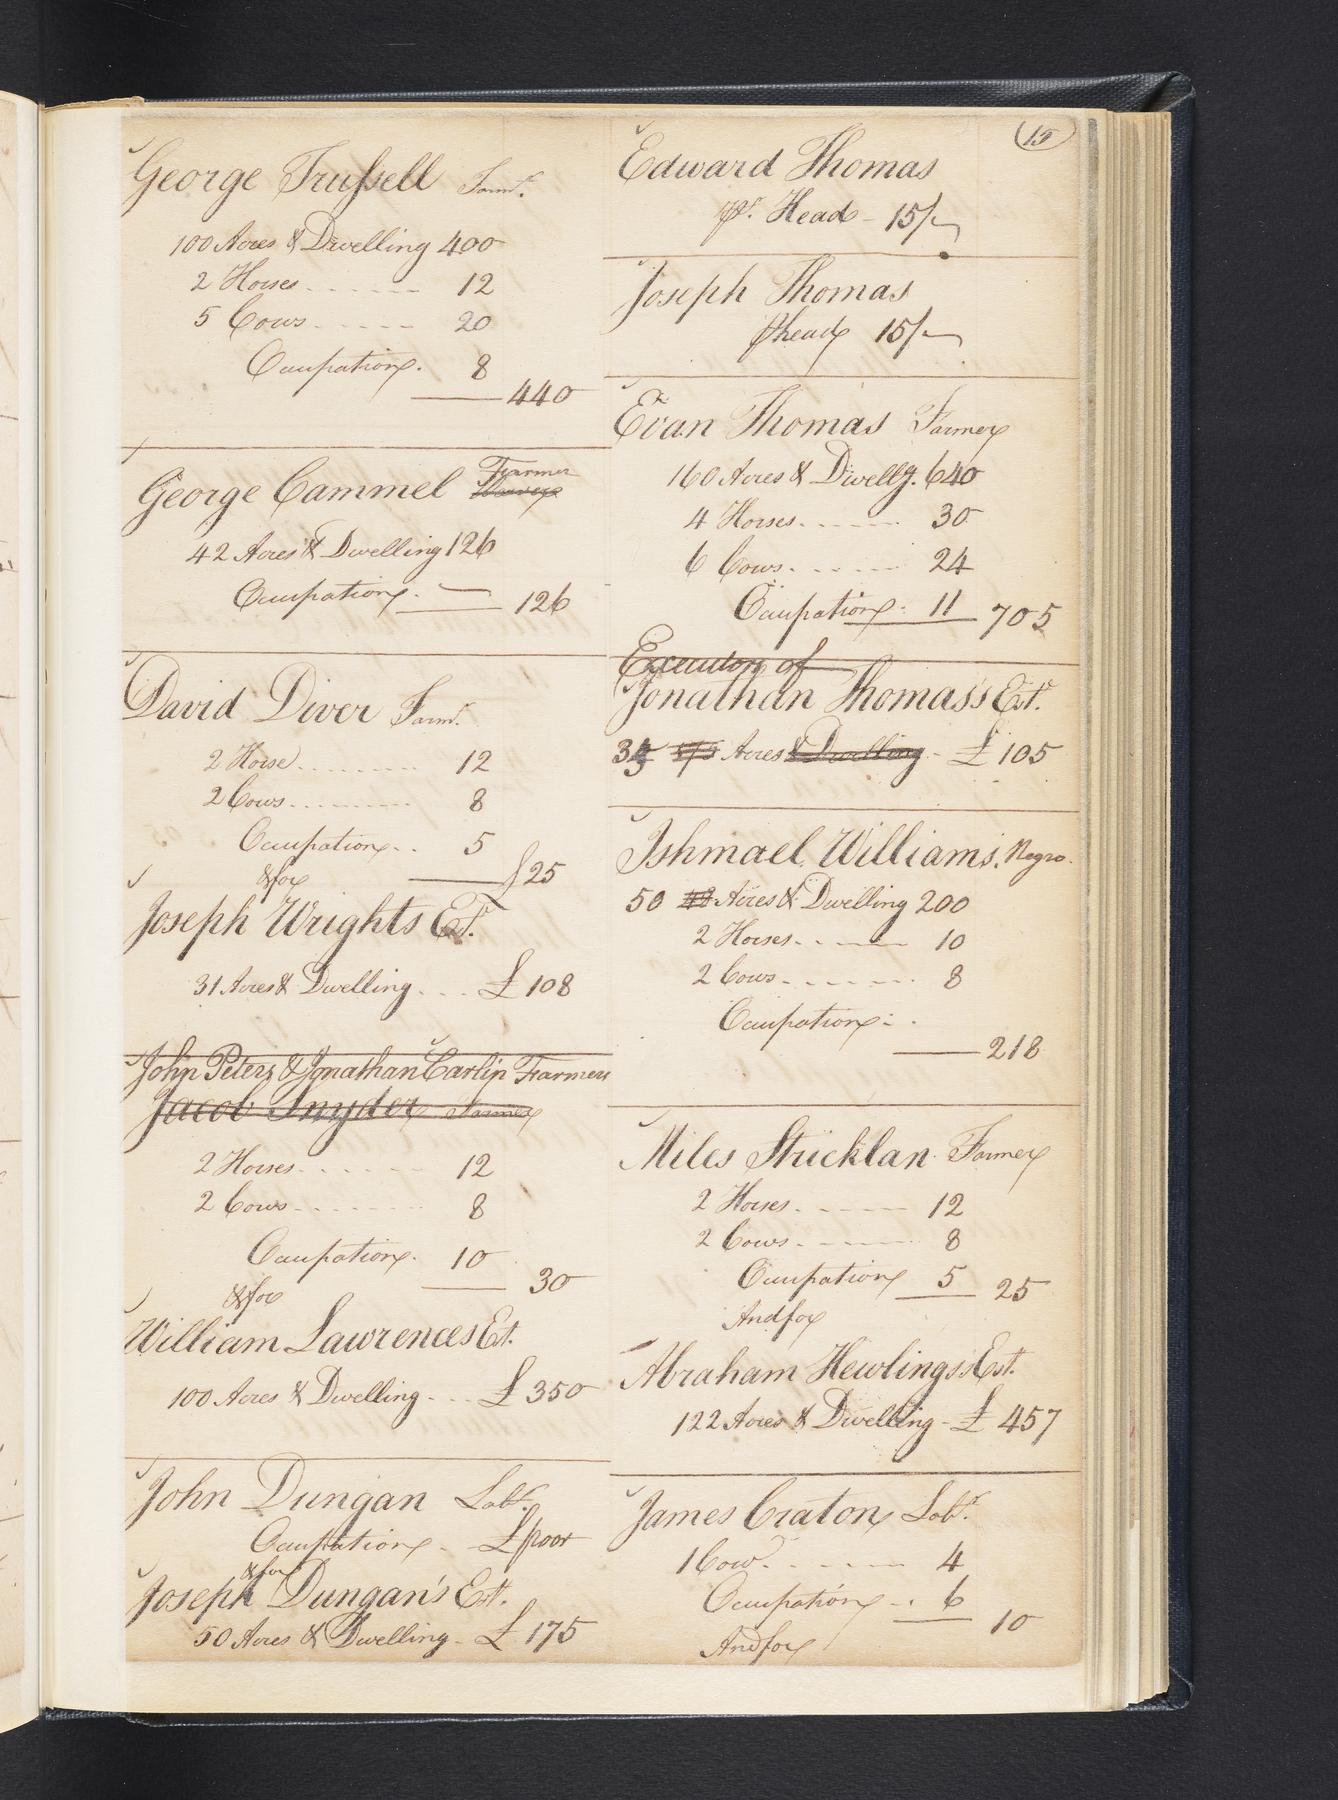 George Trussell Farmr.
100 Acres & Dwelling 400
2 Horses 12
5 Cows 20
Occupation 8
440
George Cammel Farmer
42 Acres & Dwelling 126
Occupation —
126
David Diver Farmr.
2 Horse 12
2 Cows 8
Occupation 5
£25
& for
Joseph Wrights Est.
31 Acres & Dwelling £108
John Peters & Jonathan Carlin Farmers
Jacob Snyder Farmer
2 Horses 12
2 Cows 8
Occupation 10
30
& for
William Lawrences Est.
100 Acres & Dwelling £350
John Dungan Labr.
Occupation - £ poor
& for
Joseph Dungan's Est.
50 Acres & Dwelling - £ 175
15
Edward Thomas
pr. Head - 15/-
Joseph Thomas
phead 15/-
Evan Thomas Farmer
160 Acres & Dwellg. 640
4 Horses 30
6 Cows 24
Occupation 11 705
Executor of
Jonathan Thomas's Est.
35 Acres & Dwelling - £ 105
Ishmael Williams, Negro.
50 48 Acres & Dwelling 200
2 Horses 10
2 Cows 8
Occupation
218
Miles Stricklan Farmer
2 Horses 12
2 Cows 8
Occupation 5 25
And for
Abraham Hewlings's Est.
122 Acres & Dwelling - £ 457
James Craton Labr.
1 Cow 4
Occupation 6
10
And for